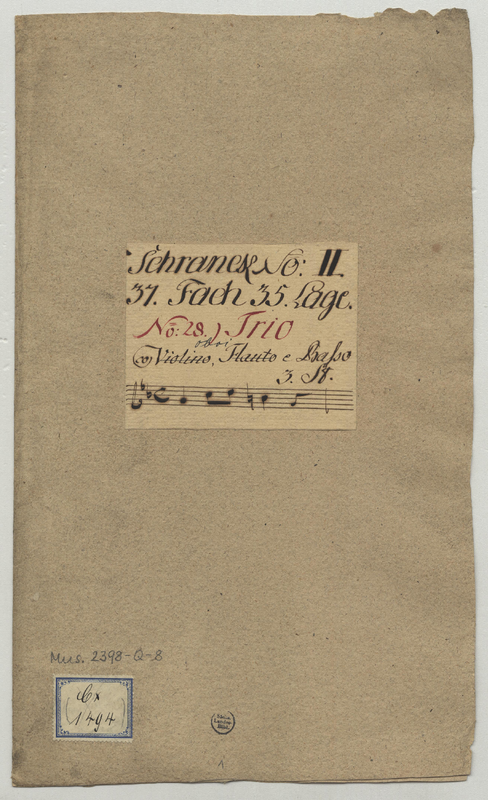 Schranck No: II.
37. Fach 35. Lage.
No: 28.) Trio
oboi
co Violino, Flauto e Basso
3. St.
Mus. 2398-Q-8
Cx
(1494)
Sächs.
Landes-
Bibl.
1